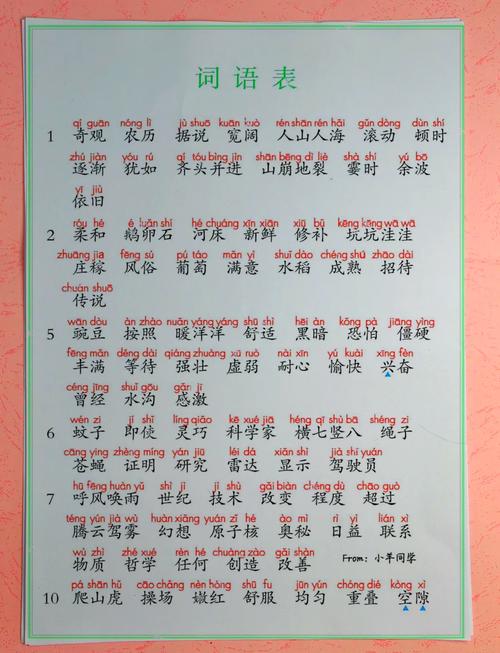 词语表
qí guān nóng lì jù shuō kuān kuò rén shān rén hǎi gǔn dòng dùn shí
1 奇观 农历 据说 宽阔 人山人海 滚动 顿时
zhú jiàn yóu rú qí tóu bìng jìn shān bēng dì liè shà shí yú bō
逐渐 犹如 齐头并进 山崩地裂 霎时 余波
yī jiù
依旧
róu hé é luǎn shí hé chuáng xīn xiān xiū bǔ kēng kēng wā wā
2 柔和 鹅卵石 河床 新鲜 修补 坑坑洼洼
zhuāng jia fēng sú pú táo mǎn yì shuǐ dào chéng shú zhāo dài
庄稼 风俗 葡萄 满意 水稻 成熟 招待
chuán shuō
传说
wān dòu àn zhào nuǎn yáng yáng shū shì hēi àn kǒng pà jiāng yìng
5 豌豆 按照 暖洋洋 舒适 黑暗 恐怕 僵硬
fēng mǎn děng dài qiáng zhuàng xū ruò nài xīn yú kuài xīng fèn
丰满 等待 强壮 虚弱 耐心 愉快 兴奋
céng jīng shuǐ gōu gǎn jī
曾经 水沟 感激
wén zi jí shǐ líng qiǎo kē xué jiā héng qī shù bā shéng zi
6 蚊子 即使 灵巧 科学家 横七竖八 绳子
cāng ying zhèng míng yán jiū léi dá xiǎn shì jià shǐ yuán
苍蝇 证明 研究 雷达 显示 驾驶员
hū fēng huàn yǔ shì jì jì shù gǎi biàn chéng dù chāo guò
7 呼风唤雨 世纪 技术 改变 程度 超过
téng yún jià wù huàn xiǎng yuán zǐ hé ào mì rì yì lián xì
腾云驾雾 幻想 原子核 奥秘 日益 联系
wù zhì zhé xué rèn hé chuàng zào gǎi shàn
物质 哲学 任何 创造 改善 From: 小羊同学
pá shān hǔ cāo chǎng nèn hóng shū fu jūn yún chóng dié kòng xì
10 爬山虎 操场 嫩红 舒服 均匀 重叠 空隙